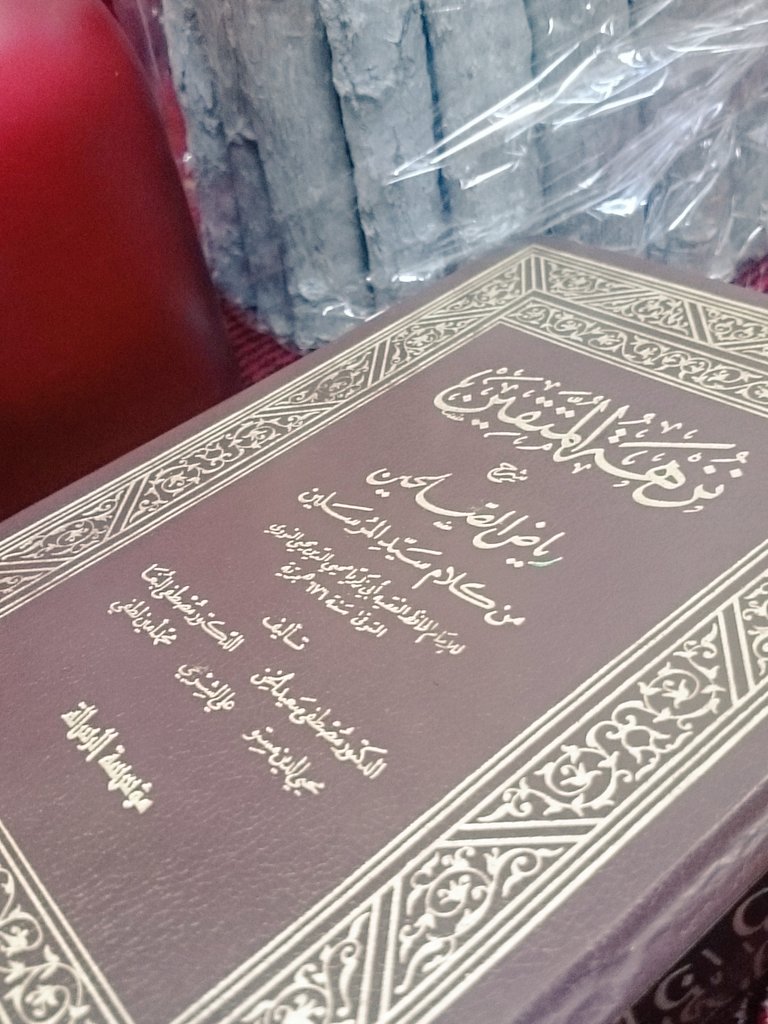 نزهة المتقين
شرح
رياض الصالحين
من كلام سيد المرسلين
للإمام الحافظ الفقيه أبي زكريا محيي الدين يحيى النووي
المتوفى سنة ٦٧٦ هجرية
تأليف
الدكتور مصطفى سعيد الخن الدكتور مصطفى البغا
محيي الدين مستو علي الشربجي محمد أمين لطفي
مؤسسة الرسالة